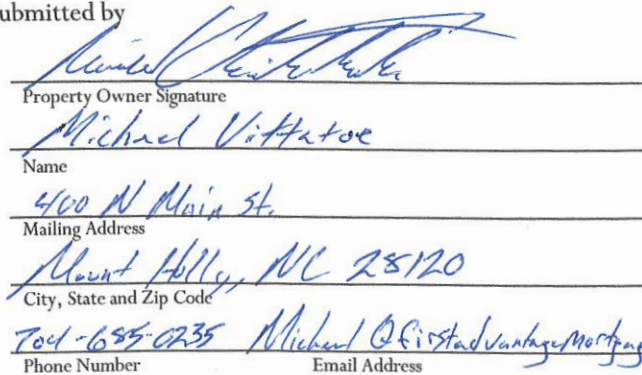 ubmitted by
Property Owner Signature
Michael Vittatoe
Name
400 N Main St.
Mailing Address
Mount Holly, NC 28120
City, State and Zip Code
704-685-0235 Michael@firstadvantagemortgag
Phone Number Email Address